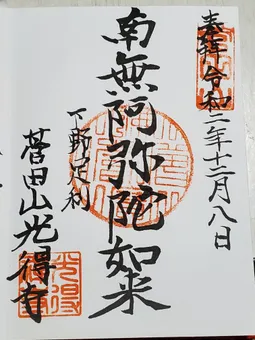 奉拝 令和二年十二月八日
南無阿弥陀如来
下野足利
菅田山光得寺